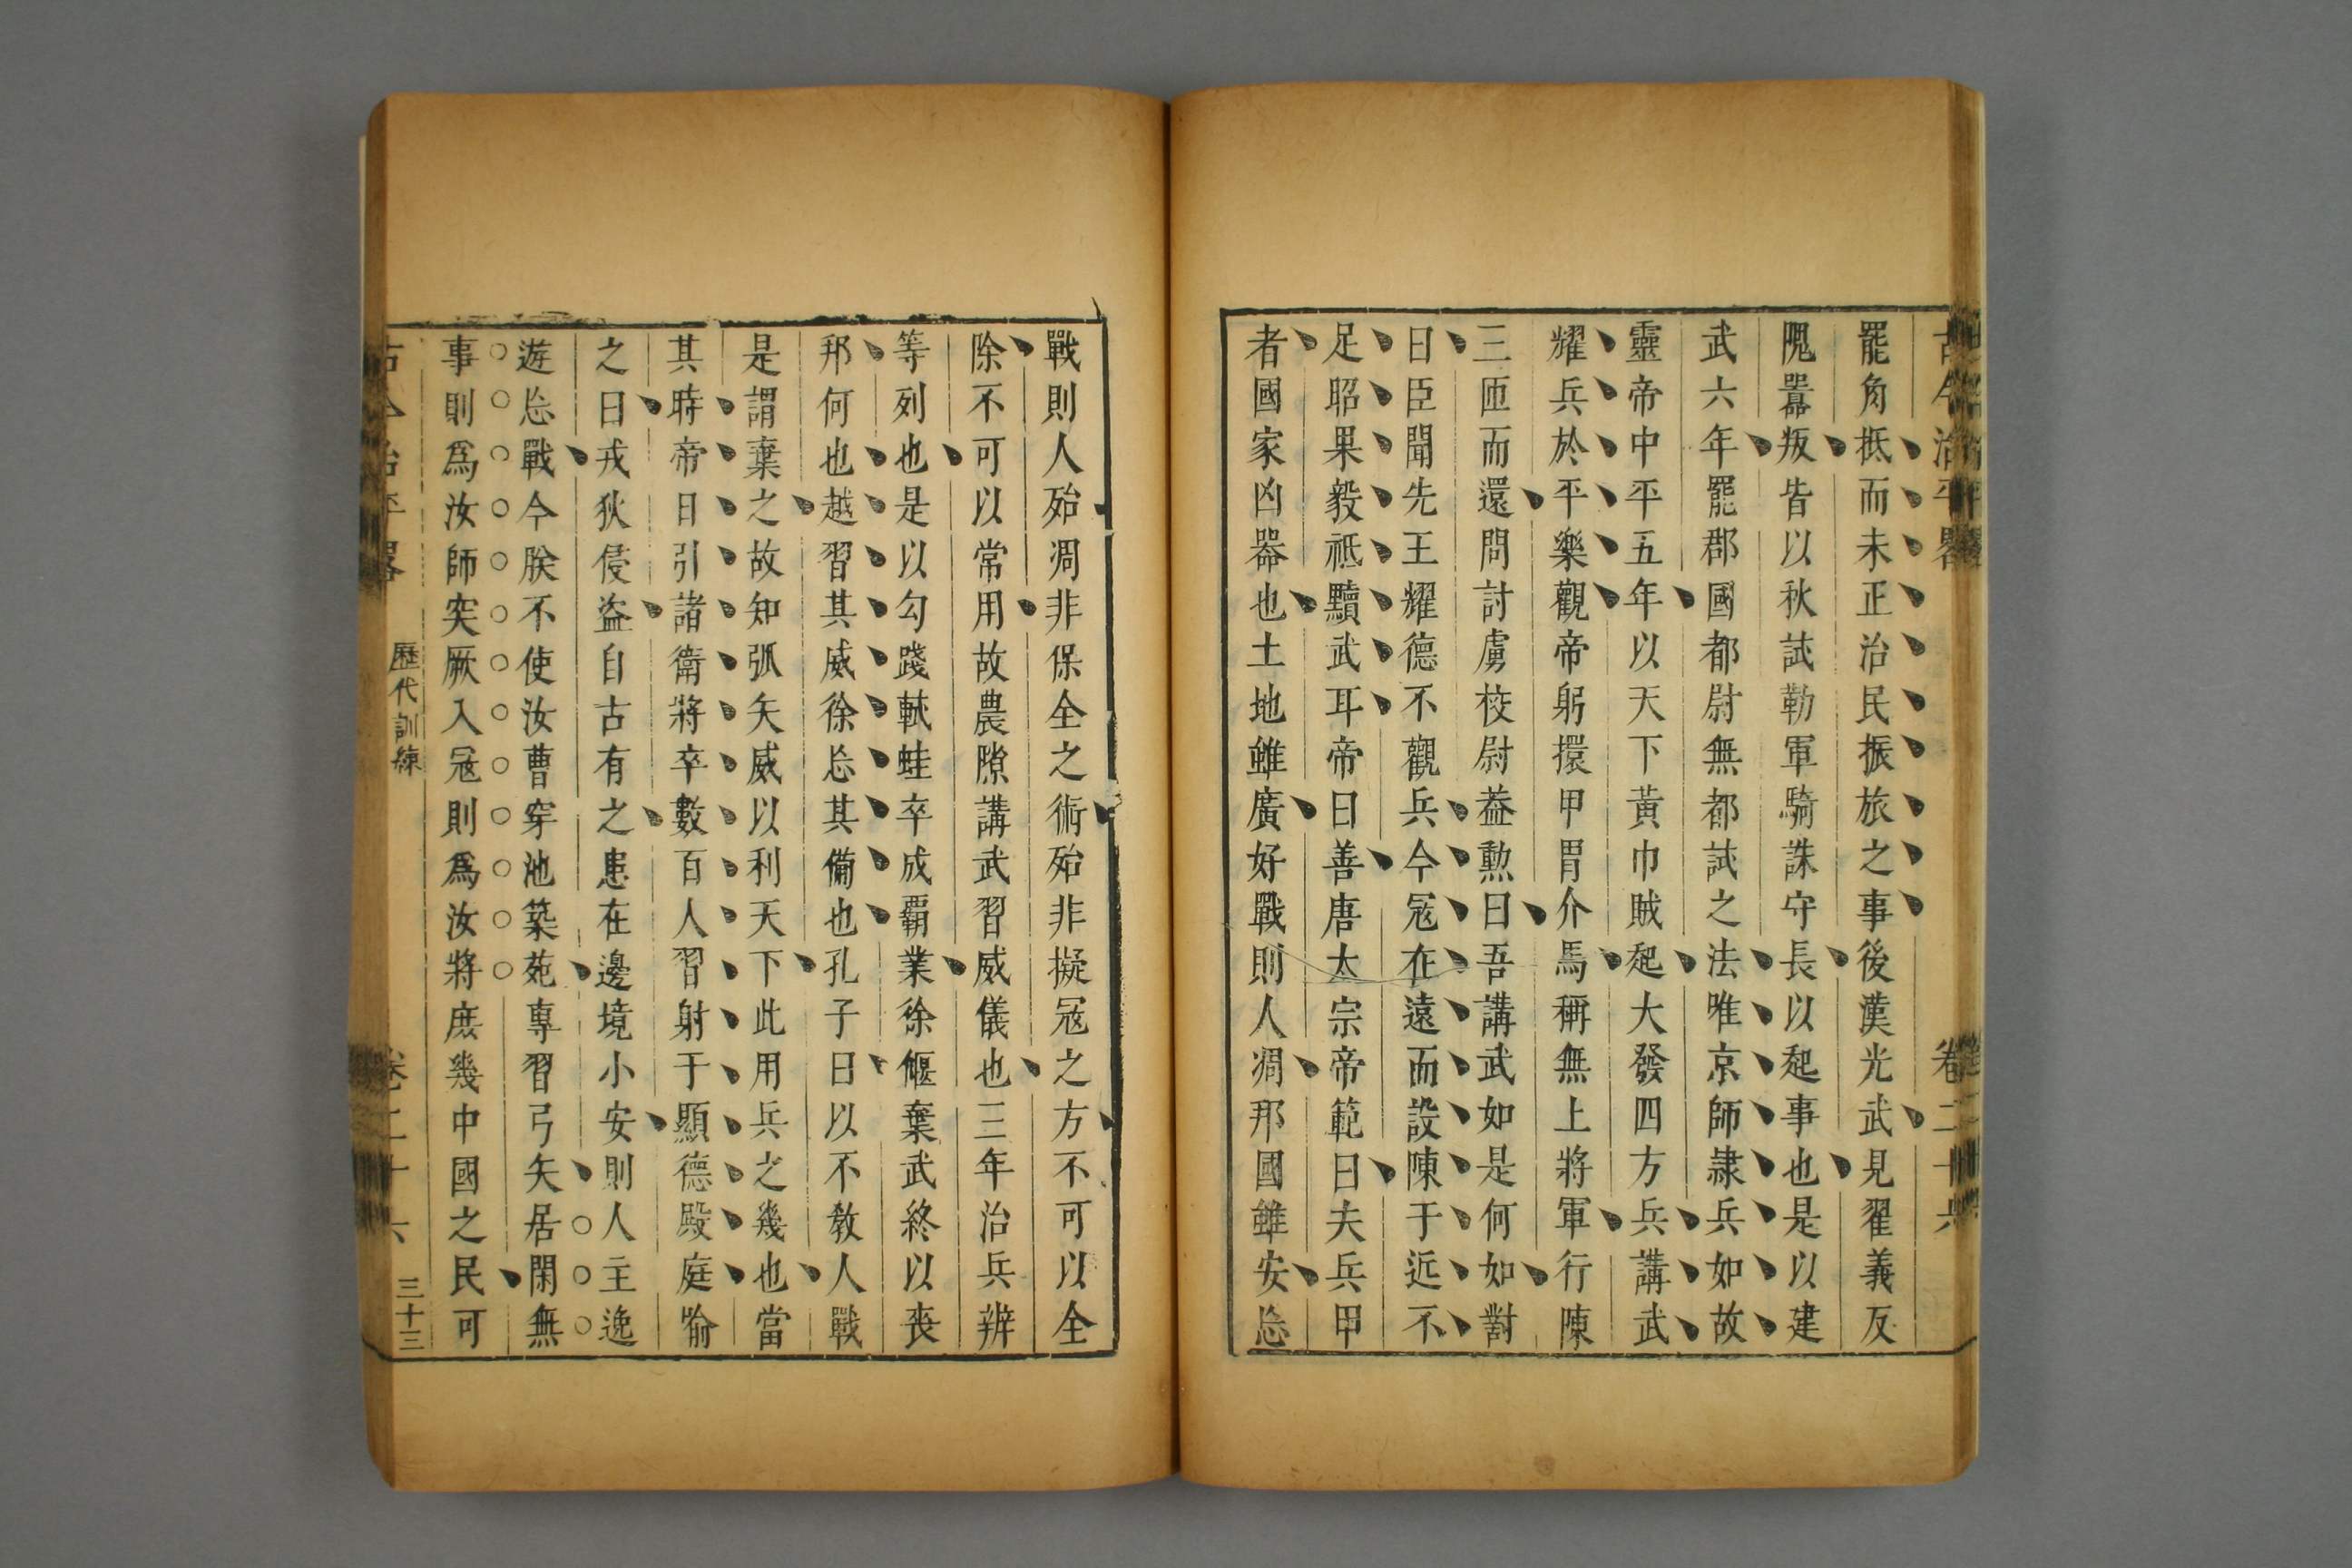 古今治平畧 卷二十六
罷角抵而未正治民振旅之事後漢光武見翟義反
隗囂叛皆以秋試勒軍騎誅守長以起事也是以建
武六年罷郡國都尉無都試之法唯京師隷兵如故
靈帝中平五年以天下黃巾賊起大發四方兵講武
耀兵於平樂觀帝躬擐甲胃介馬稱無上將軍行陳
三匝而還問討虜校尉葢勲曰吾講武如是何如對
曰臣聞先王耀德不觀兵今冦在遠而設陳于近不
足昭果毅祗黷武耳帝曰善唐太宗帝範曰夫兵甲
者國家凶器也土地雖廣好戰則人凋邦國雖安忘
戰則人殆凋非保全之術殆非擬冦之方不可以全
除不可以常用故農隙講武習威儀也三年治兵辨
等列也是以勾踐軾蛙卒成覇業徐偃棄武終以喪
邦何也越習其威徐忘其備也孔子曰以不教人戰
是謂棄之故知弧矢威以利天下此用兵之幾也當
其時帝日引諸衛將卒數百人習射于顯德殿庭喻
之曰戎狄侵盜自古有之患在邊境小安則人主逸
遊忘戰今朕不使汝曹穿池築苑專習弓矢居閑無
事則爲汝師突厥入冦則爲汝將庶幾中國之民可
古今治平畧 歷代訓練 卷二十六 三十三